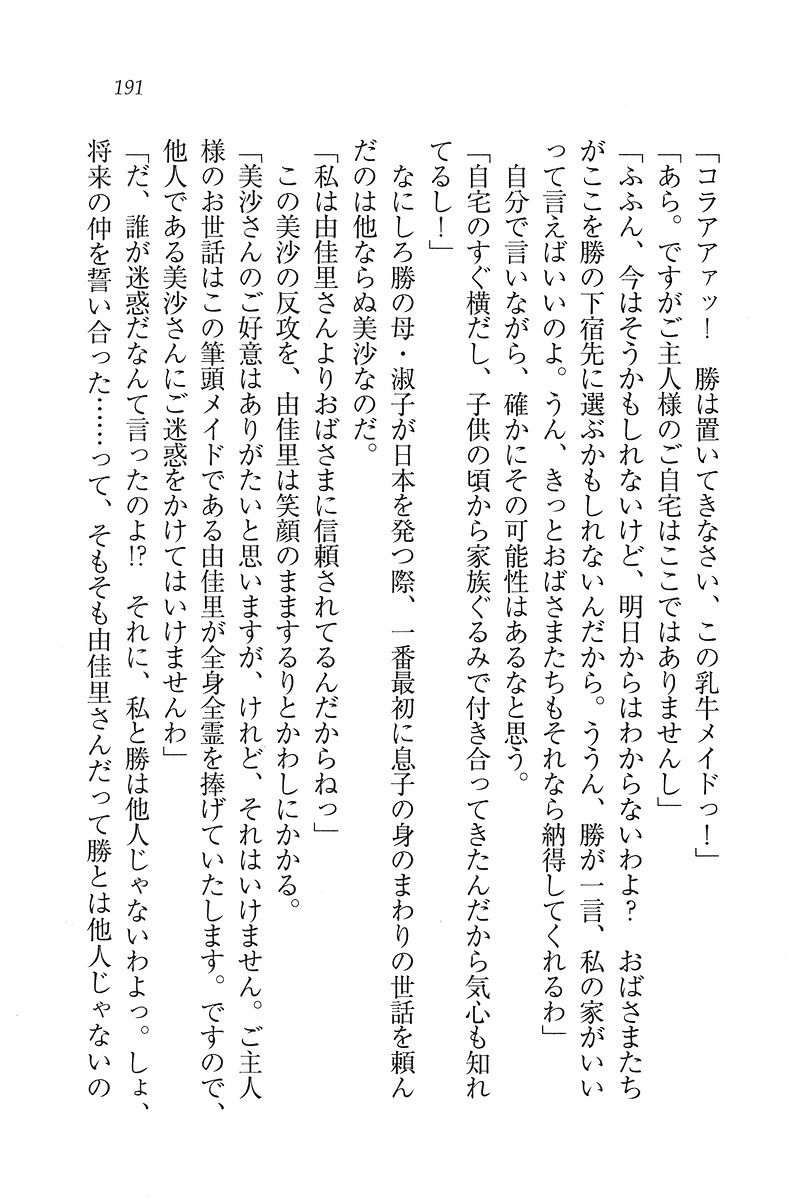 191
「コラアァッ！　勝は置いてきなさい、この乳牛メイドっ！」
「あら。ですがご主人様のご自宅はここではありませんし」
「ふふん、今はそうかもしれないけど、明日からはわからないわよ？　おばさまたち
がここを勝の下宿先に選ぶかもしれないんだから。ううん、勝が一言、私の家がいい
って言えばいいのよ。うん、きっとおばさまたちもそれなら納得してくれるわ」
　自分で言いながら、確かにその可能性はあるなと思う。
「自宅のすぐ横だし、子供の頃から家族ぐるみで付き合ってきたんだから気心も知れ
てるし！」
　なにしろ勝の母・淑子が日本を発つ際、一番最初に息子の身のまわりの世話を頼ん
だのは他ならぬ美沙なのだ。
「私は由佳里さんよりおばさまに信頼されてるんだからねっ」
　この美沙の反攻を、由佳里は笑顔のままするりとかわしにかかる。
「美沙さんのご好意はありがたいと思いますが、けれど、それはいけません。ご主人
様のお世話はこの筆頭メイドである由佳里が全身全霊を捧げていたします。ですので、
他人である美沙さんにご迷惑をかけてはいけませんわ」
「だ、誰が迷惑だなんて言ったのよ!?　それに、私と勝は他人じゃないわよっ。しょ、
将来の仲を誓い合った……って、そもそも由佳里さんだって勝とは他人じゃないの